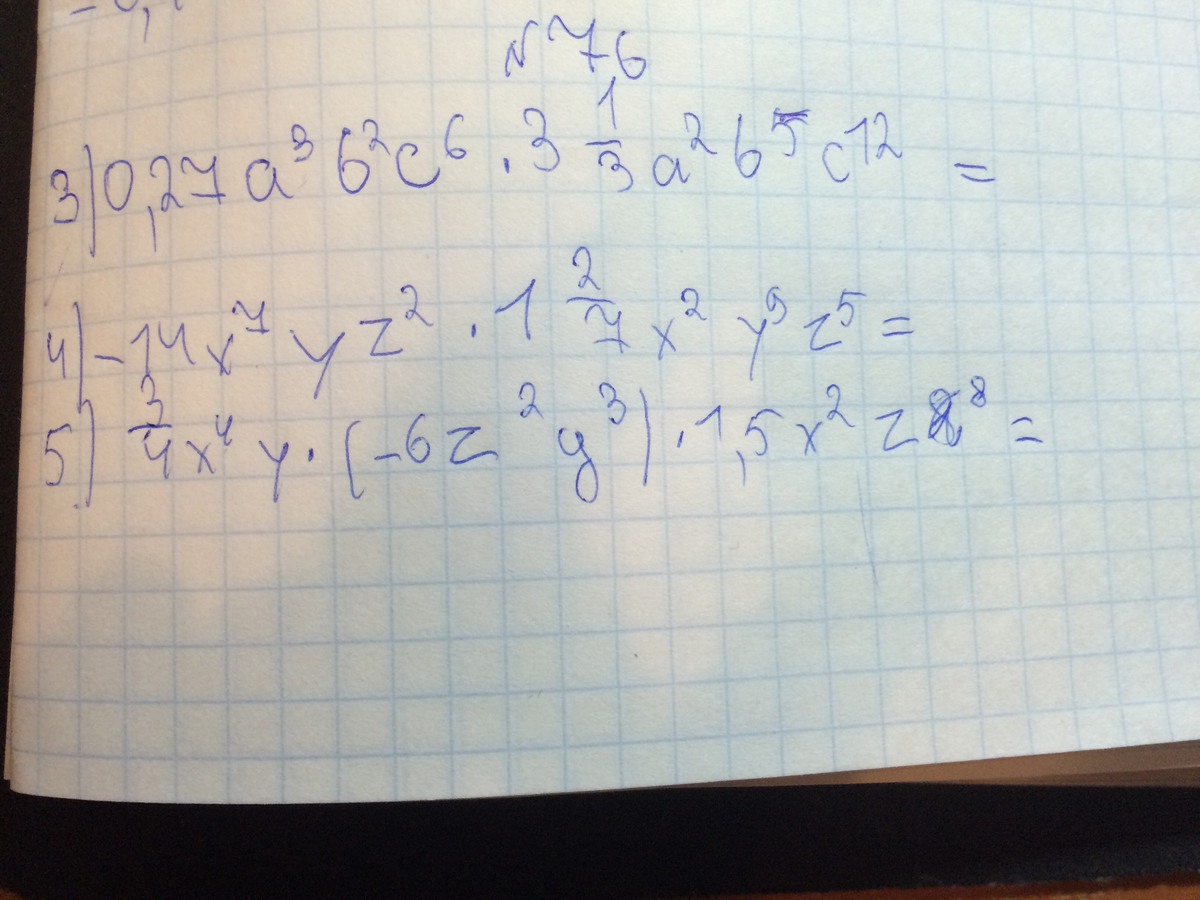 № 76
3) 0,27 a³ b² c⁶ · 3 1/3 a² b⁵ c¹² =
4) -14 x⁷ y z² · 1 2/7 x² y⁹ z⁵ =
5) 3/4 x⁴ y · (-6 z² y³) · 1,5 x² z⁸ =